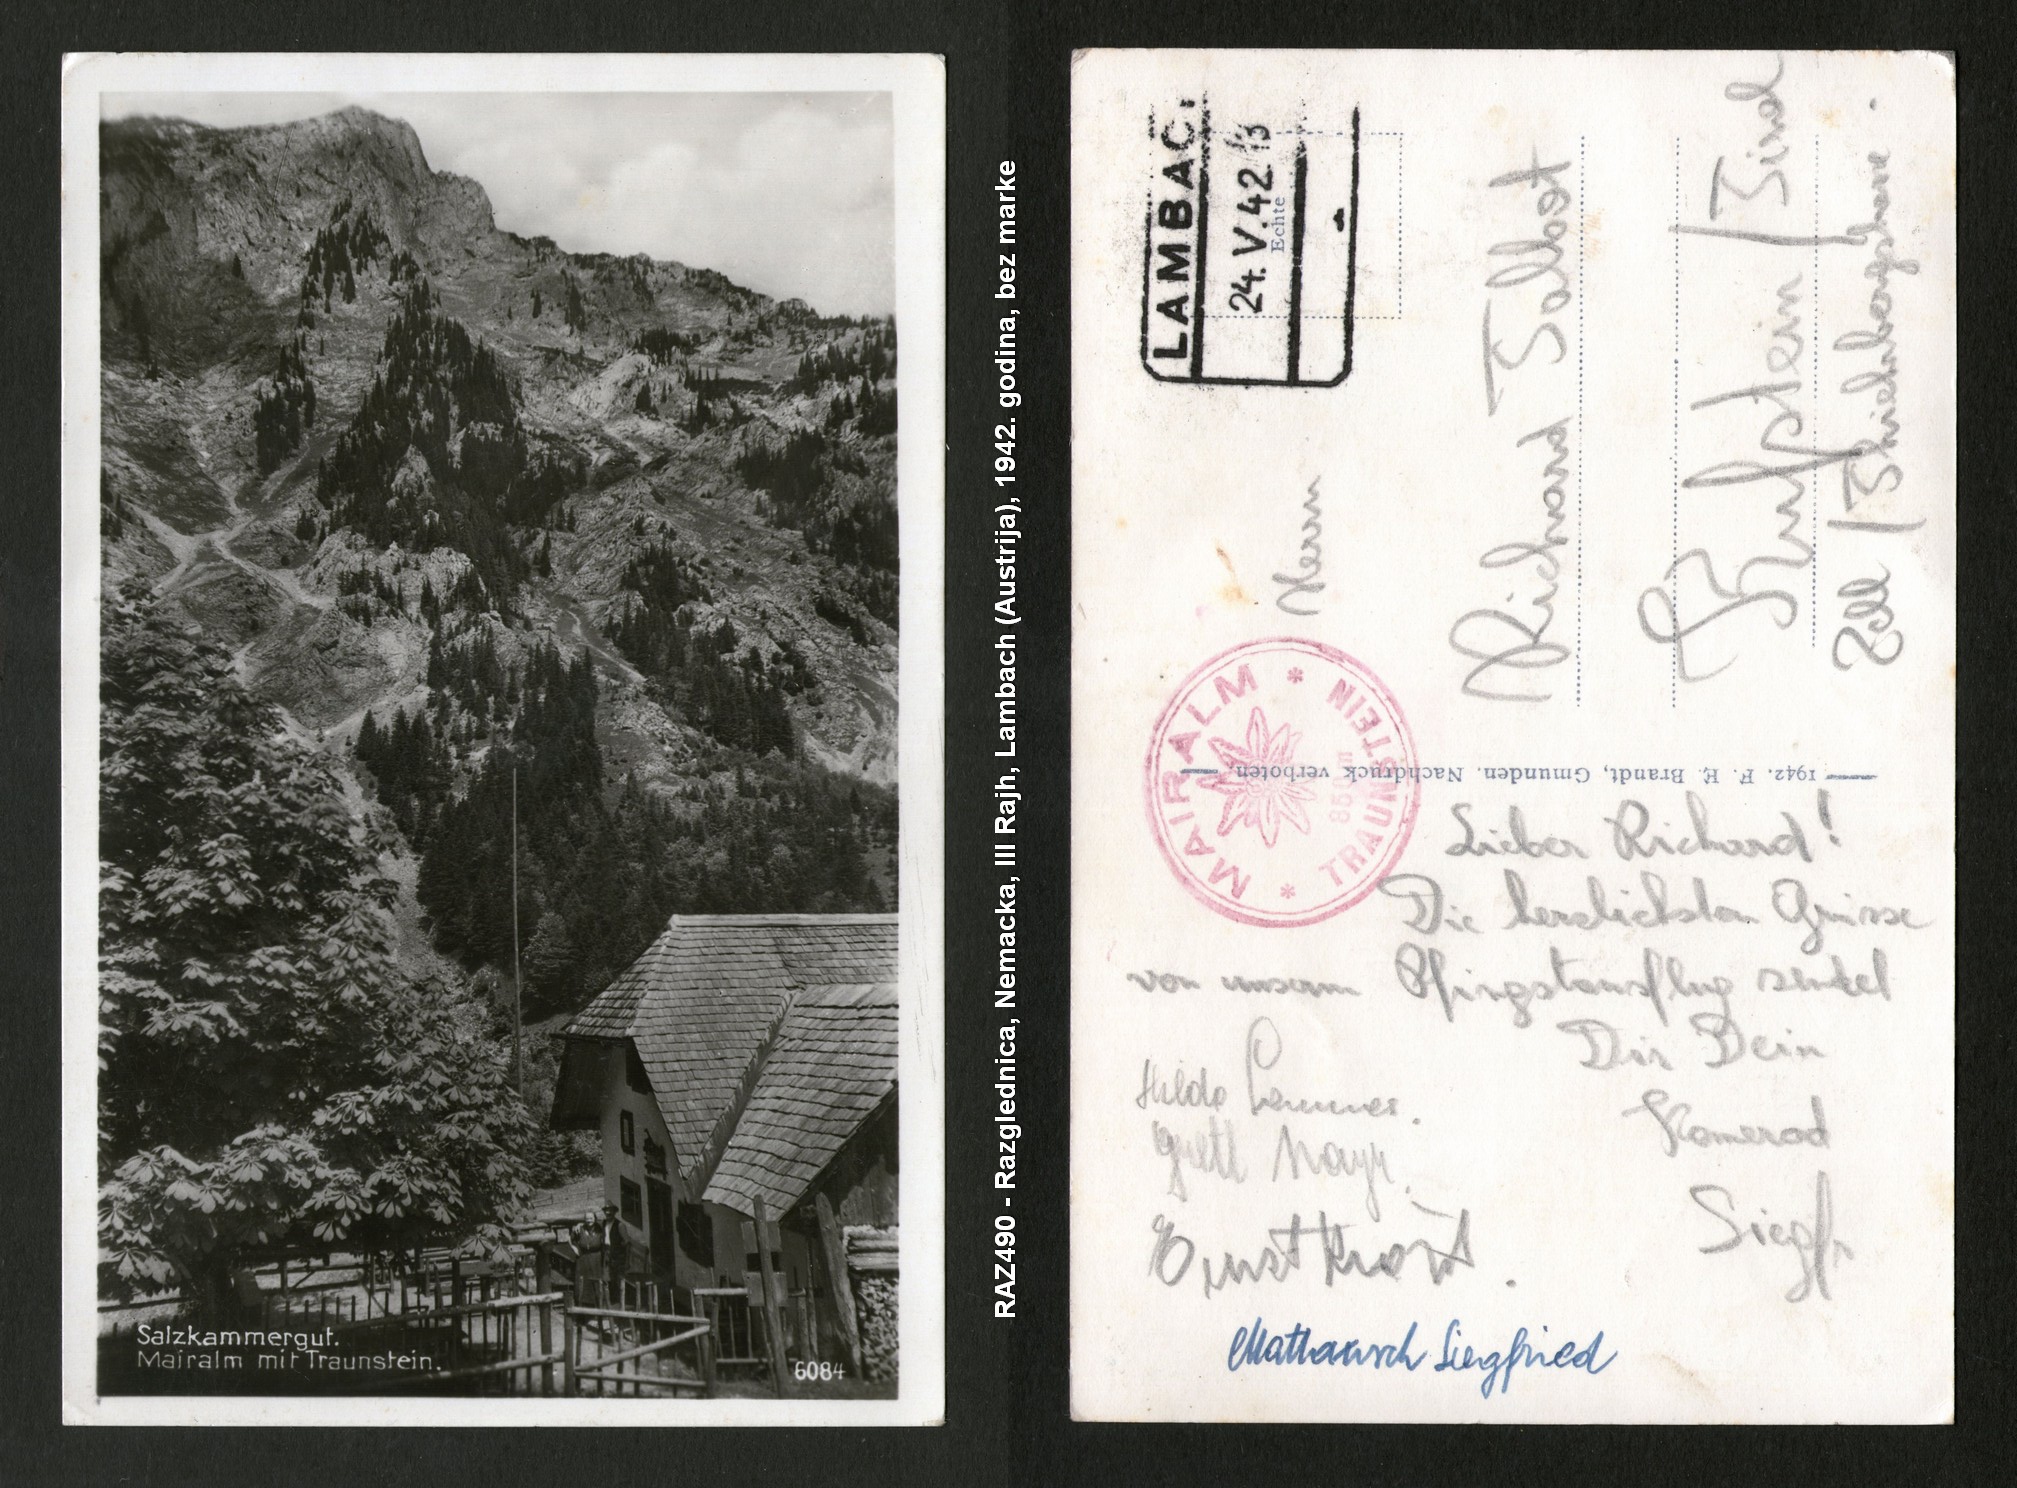 Salzkammergut.
Mairalm mit Traunstein.
6084
RAZ490 - Razglednica, Nemacka, III Rajh, Lambach (Austrija), 1942. godina, bez marke
LAMBAC
24. V. 42. 13
Echte
Herrn
Richard
Kufstein / Tirol
Zell /
* MAIRALM *
TRAUNSTEIN
850 m
1942. F. E. Brandt, Gmunden. Nachdruck verboten.
Lieber Richard!
Die herzlichsten Grüsse
von unserm Pfingstausflug sendet
Dir Dein
Kamerad
Siegfr
Hilde
Gretl Mayr.
Ernst
Siegfried